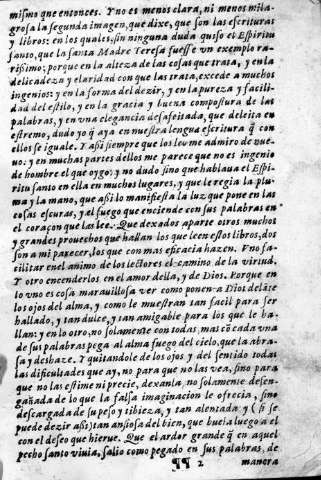 mismo que entonces. Y no es menos clara, ni menos mila-
grosa la segunda imagen, que dixe, que son las escrituras
y libros: en los quales, sin ninguna duda quiso el Espiritu
santo, que la santa Madre Teresa fuesse vn exemplo ra-
rissimo: porque en la alteza de las cosas que trata, y en la
delicadeza y claridad con que las trata, excede a muchos
ingenios: y en la forma del dezir, y en la pureza y facili-
dad del estilo, y en la gracia y buena compostura de las
palabras, y en vna elegancia desafeitada, que deleita en
estremo, dudo yo q̃ aya en nuestra lengua escritura q̃ con
ellos se iguale. Y assi siempre que los leo me admiro de nue-
uo: y en muchas partes dellos me parece que no es ingenio
de hombre el que oygo: y no dudo sino que hablaua el Espi-
ritu santo en ella en muchos lugares, y que le regia la plu-
ma y la mano, que assi lo manifiesta la luz que pone en las
cosas escuras, y el fuego que enciende con sus palabras en
el coraçon que las lee. Que dexados aparte otros muchos
y grandes prouechos que hallan los que leen estos libros, dos
son a mi parecer, los que con mas eficacia hazen. Vno fa-
cilitar en el animo de los lectores el camino de la virtud,
Y otro encenderlos en el amor della, y de Dios. Porque en
lo vno es cosa marauillosa ver como ponen a Dios delãte
los ojos del alma, y como le muestran tan facil para ser
hallado, y tan dulce, y tan amigable para los que le ha-
llan: y en lo otro, no solamente con todas, mas cõ cada vna
de sus palabras pega al alma fuego del cielo, que la abra-
sa y deshaze. Y quitandole de los ojos y del sentido todas
las dificultades que ay, no para que no las vea, sino para
que no las estime ni precie, dexanla, no solamente desen-
gañada de lo que la falsa imaginacion le ofrecia, sino
descargada de su peso y tibieza, y tan alentada y (si se
puede dezir assi) tan ansiosa del bien, que buela luego a el
con el deseo que hierue. Que el ardor grande q̃ en aquel
pecho santo viuia, salio como pegado en sus palabras, de
¶¶ 2 manera